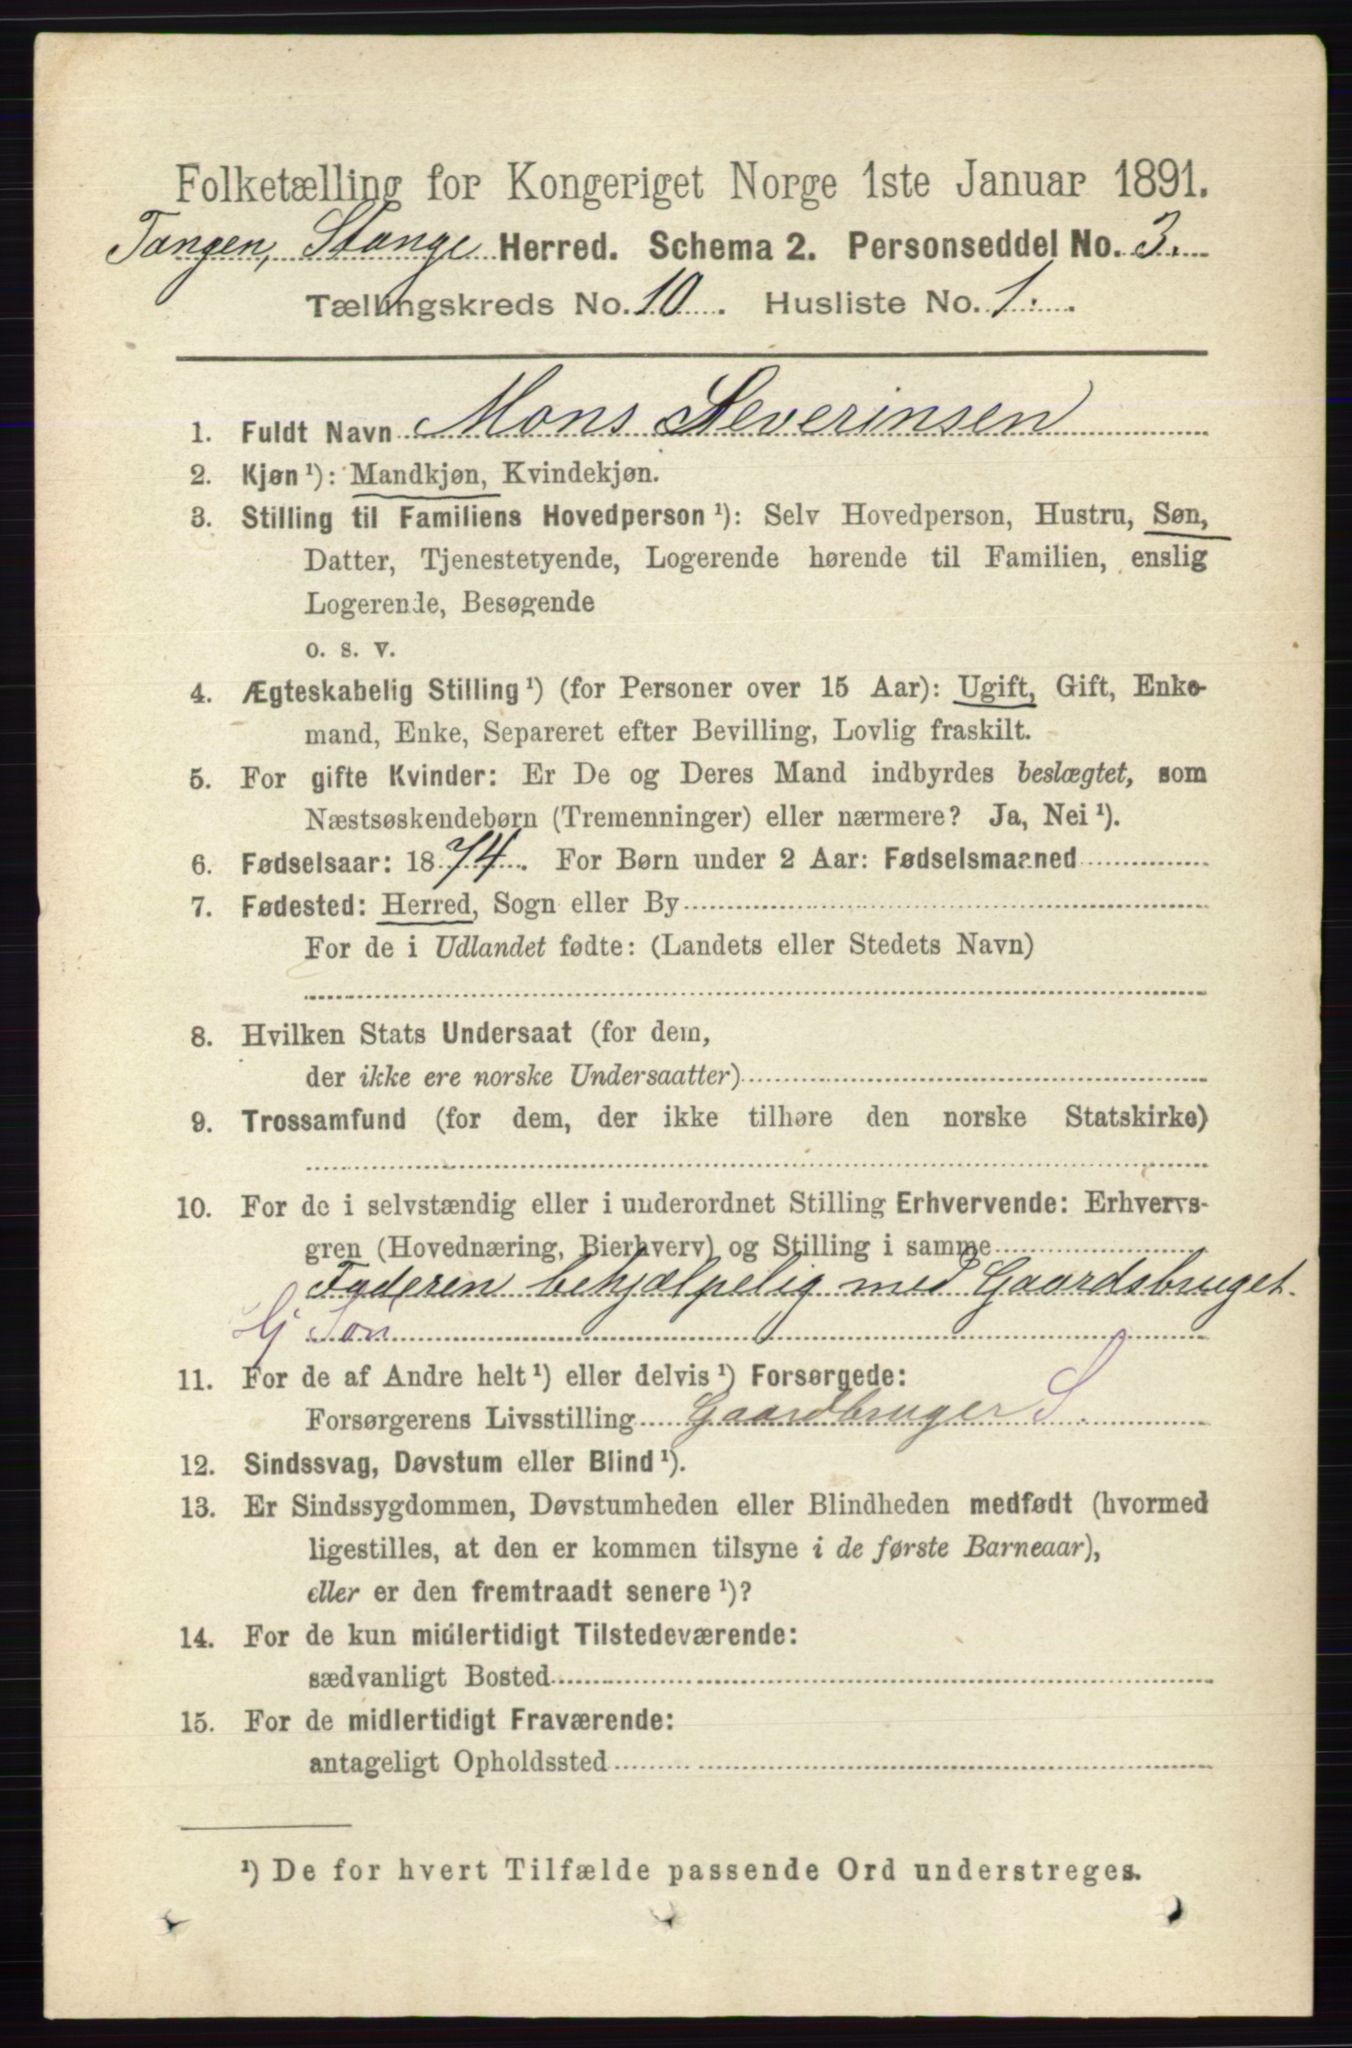 Folketælling for Kongeriget Norge 1ste Januar 1891.
Tangen, Stange Herred. Schema 2. Personseddel No. 3.
Tællingskreds No. 10. Husliste No. 1.
1. Fuldt Navn Mons Severinsen
2. Kjøn¹): Mandkjøn, Kvindekjøn.
3. Stilling til Familiens Hovedperson¹): Selv Hovedperson, Hustru, Søn,
Datter, Tjenestetyende, Logerende hørende til Familien, enslig
Logerende, Besøgende
o. s. v.
4. Ægteskabelig Stilling¹) (for Personer over 15 Aar): Ugift, Gift, Enke-
mand, Enke, Separeret efter Bevilling, Lovlig fraskilt.
5. For gifte Kvinder: Er De og Deres Mand indbyrdes beslægtet, som
Næstsøskendebørn (Tremenninger) eller nærmere? Ja, Nei¹).
6. Fødselsaar: 1874. For Børn under 2 Aar: Fødselsmaaned
7. Fødested: Herred, Sogn eller By
For de i Udlandet fødte: (Landets eller Stedets Navn)
8. Hvilken Stats Undersaat (for dem,
der ikke ere norske Undersaatter)
9. Trossamfund (for dem, der ikke tilhøre den norske Statskirke)
10. For de i selvstændig eller i underordnet Stilling Erhvervende: Erhvervs-
gren (Hovednæring, Bierhverv) og Stilling i samme
Faderen behjælpelig med Gaardsbruget.
Gj Søn
11. For de af Andre helt¹) eller delvis¹) Forsørgede:
Forsørgerens Livsstilling Gaardbruger S.
12. Sindssvag, Døvstum eller Blind¹).
13. Er Sindssygdommen, Døvstumheden eller Blindheden medfødt (hvormed
ligestilles, at den er kommen tilsyne i de første Barneaar),
eller er den fremtraadt senere¹)?
14. For de kun midlertidigt Tilstedeværende:
sædvanligt Bosted
15. For de midlertidigt Fraværende:
antageligt Opholdssted
¹) De for hvert Tilfælde passende Ord understreges.